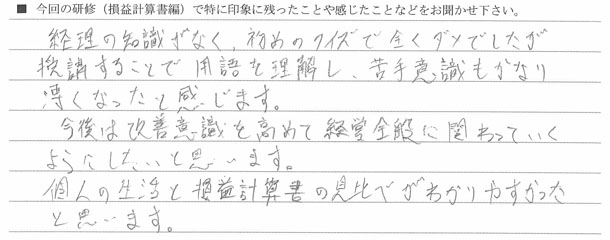 ■ 今回の研修（損益計算書編）で特に印象に残ったことや感じたことなどをお聞かせ下さい。
経理の知識がなく、初めのクイズで全くダメでしたが
受講することで用語を理解し、苦手意識もかなり
薄くなったと感じます。
今後は改善意識を高めて経営全般に関わっていく
ようにしたいと思います。
個人の生活と損益計算書の見比べがわかりやすかった
と思います。